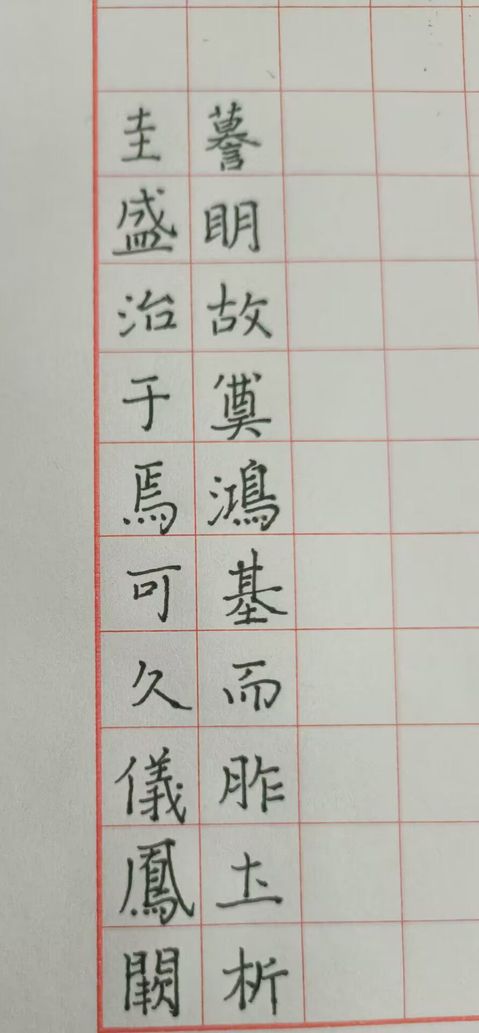 謩明故奠鴻基而胙土析
圭盛治于焉可久儀鳳闕